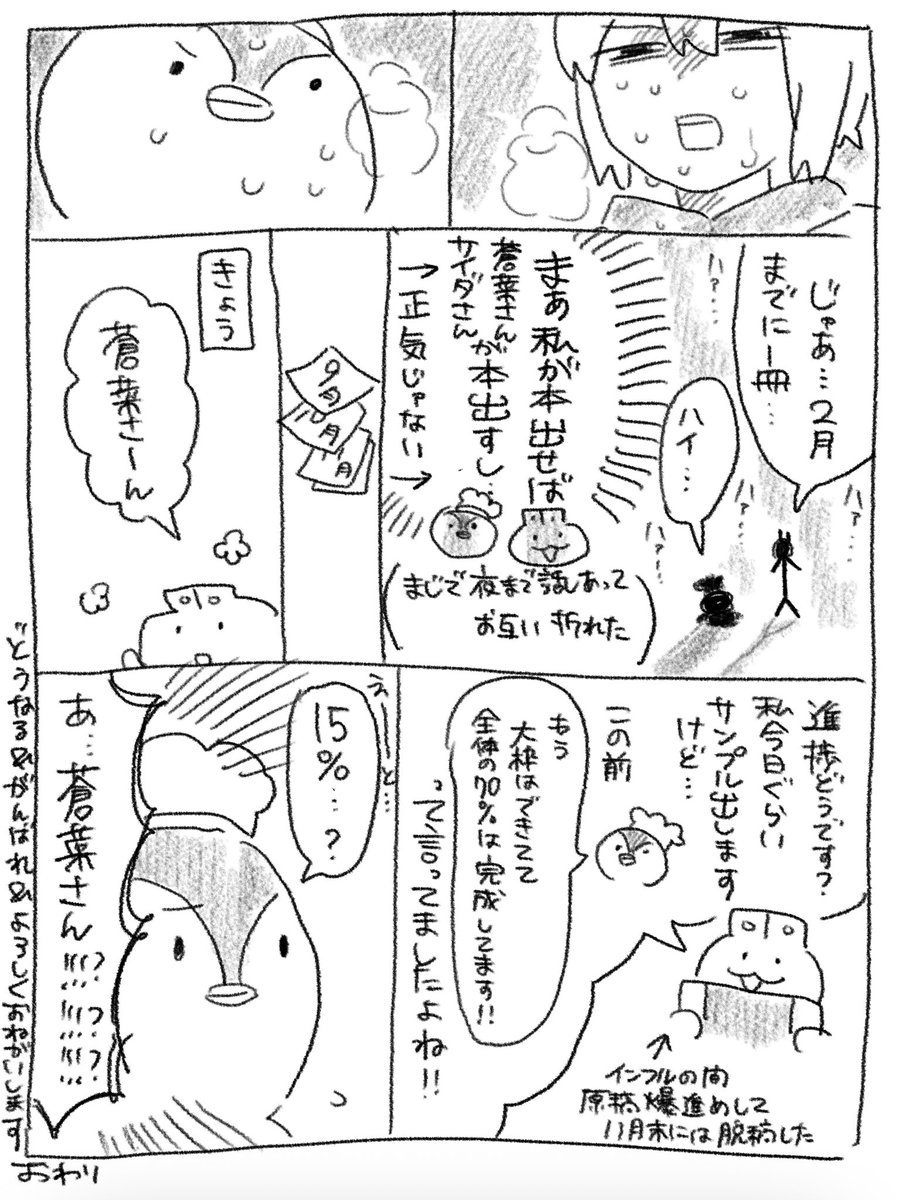 じゃあ…2月
までに一冊…
ハイ…
ハァ…
ハァ…
ハァ…
ハァ…
まぁ私が本出せば
蒼葉さんが
サイダさん
本出すし…
→正気じゃない→
(まじで夜まで話しあって
お互い折れた)
9月
10月
11月
きょう
蒼葉さーん
進捗どうです?
私今日ぐらい
サンプル出します
けど…
インフルの間
原稿爆進めして
11月末には脱稿した
この前
もう
大枠はできてて
全体の70%は完成してます!!
って言ってましたよね!!
えーと…
15%…?
あ…蒼葉さん!!?!!?!!?
どうなる&がんばれ&よろしくおねがいします
おわり